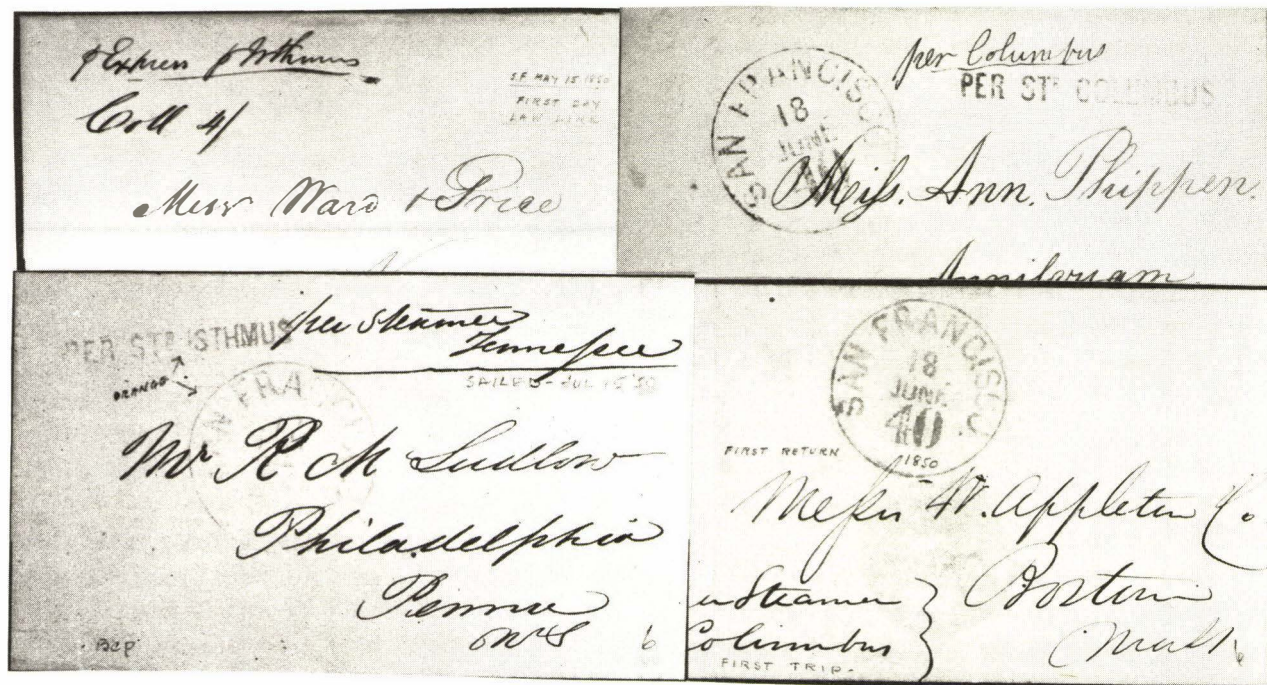 p Express p Isthmus
Coll 4/
S.F. MAY 15 1850
FIRST DAY
LAW LINE
Messr Ward & Price
per Columbus
PER STR COLUMBUS
SAN FRANCISCO
18
JUNE
40
Miss. Ann. Phippen.
Annisquam
PER STR ISTHMUS
per Steamer
Tennessee
SAILED - JUL 1 5 '50
ORANGE
SAN FRANCISCO
Mr R M Ludlow
Philadelphia
Penna
BCP
6
SAN FRANCISCO
18
JUNE
40
1850
FIRST RETURN
Messrs W. Appleton Co
Boston
Mass
er Steamer
Columbus
FIRST TRIP-